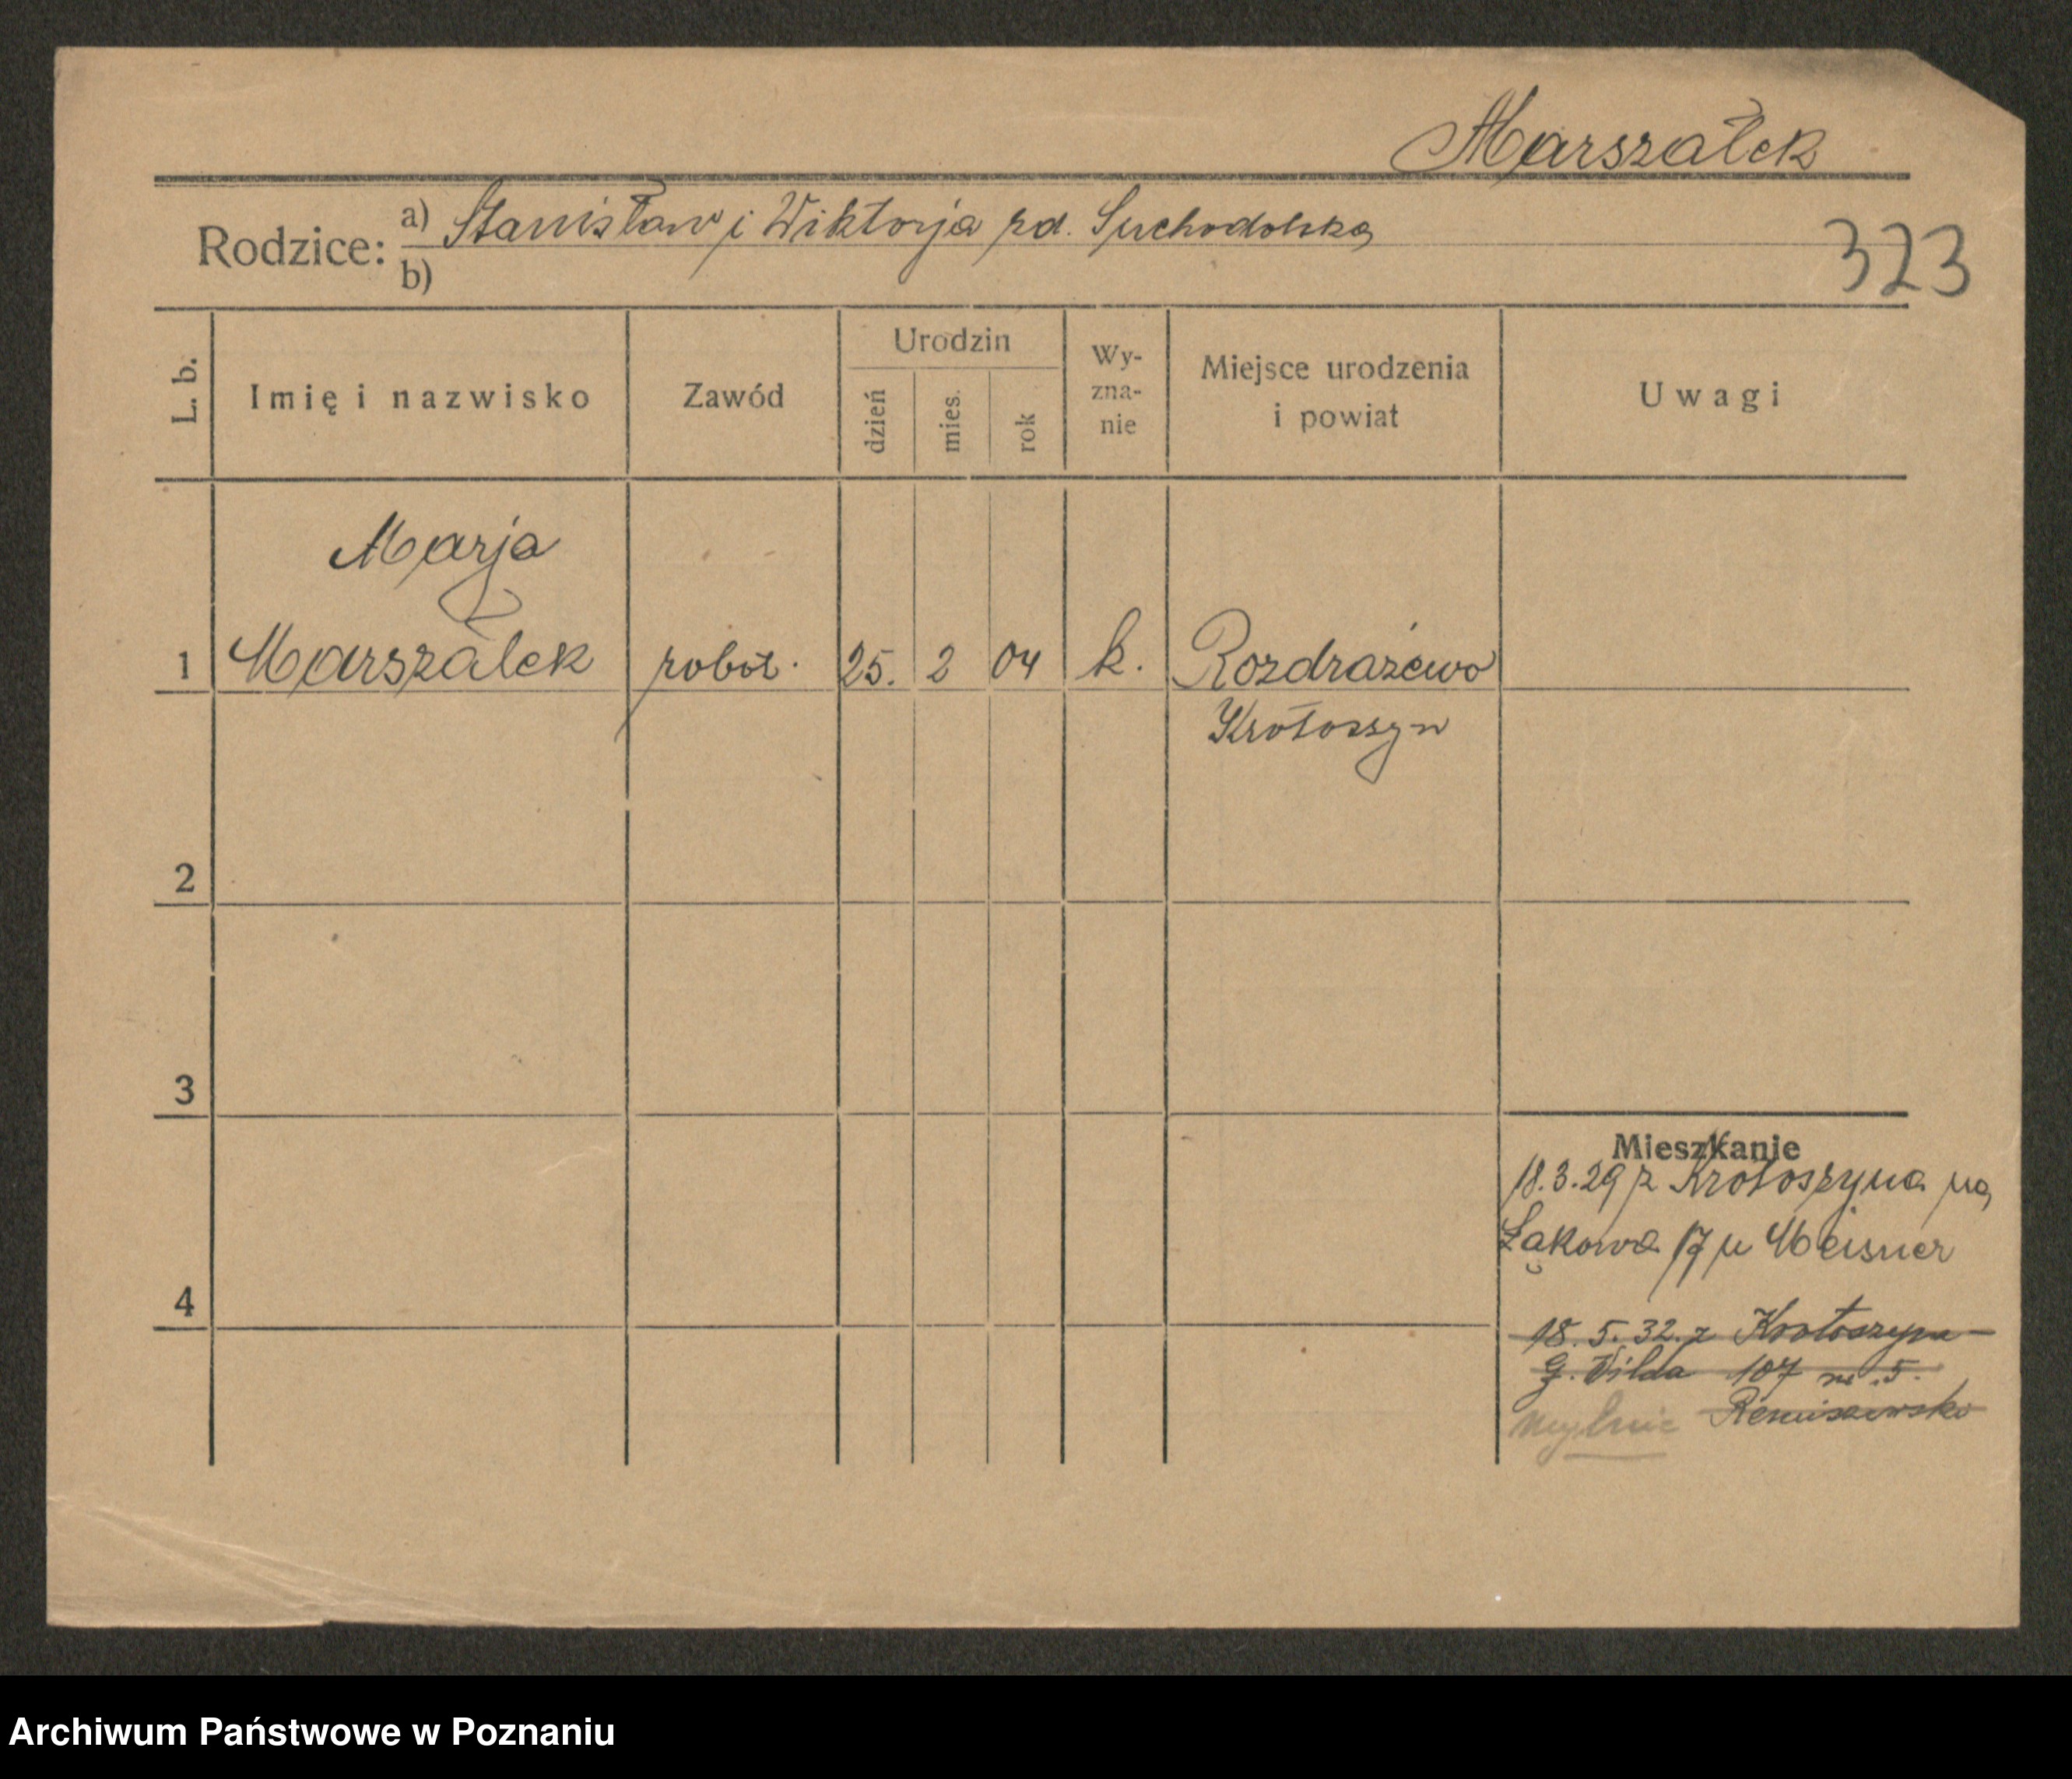 Marszałek
Rodzice: a) Stanisław i Wiktorja rd. Suchodolska
b)
323
L. b.
Imię i nazwisko
Zawód
Urodzin
dzień
mies.
rok
Wy-
zna-
nie
Miejsce urodzenia
i powiat
Uwagi
Marja
1 Marszałek robot. 25. 2 04 k. Rozdrażewo
Krotoszyn
2
3
4
Mieszkanie
18.3.29 z Krotoszyna na
Łąkowa 17 u Meisner
18.5.32. z Krotoszyna
G. Wilda 107 m. 5.
mylnie